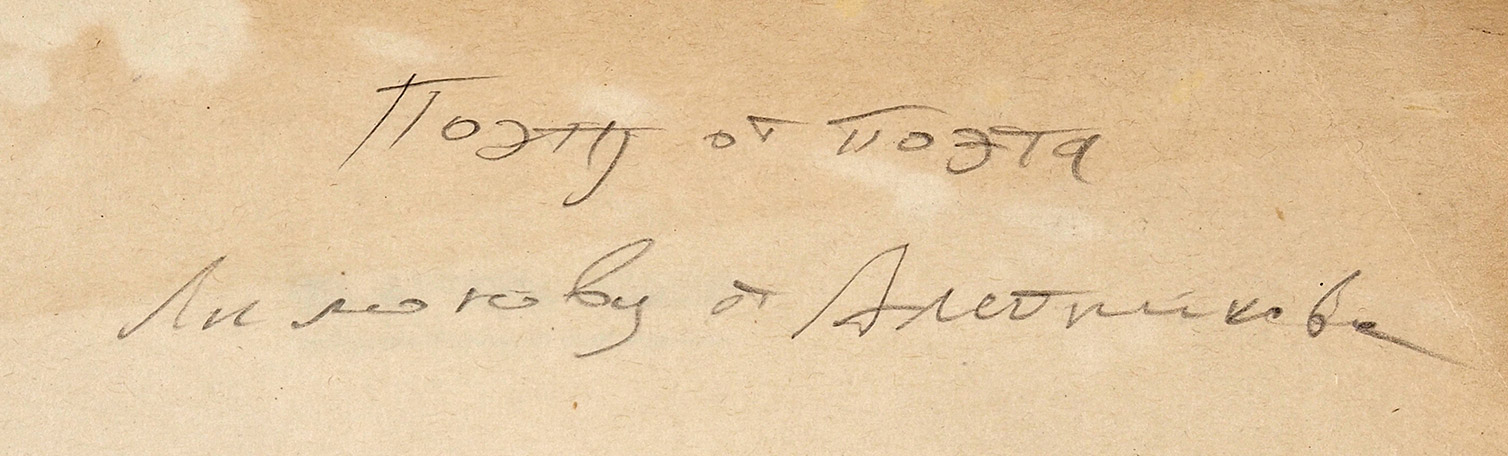 Поэту от поэта
Лимонову от Алейникова